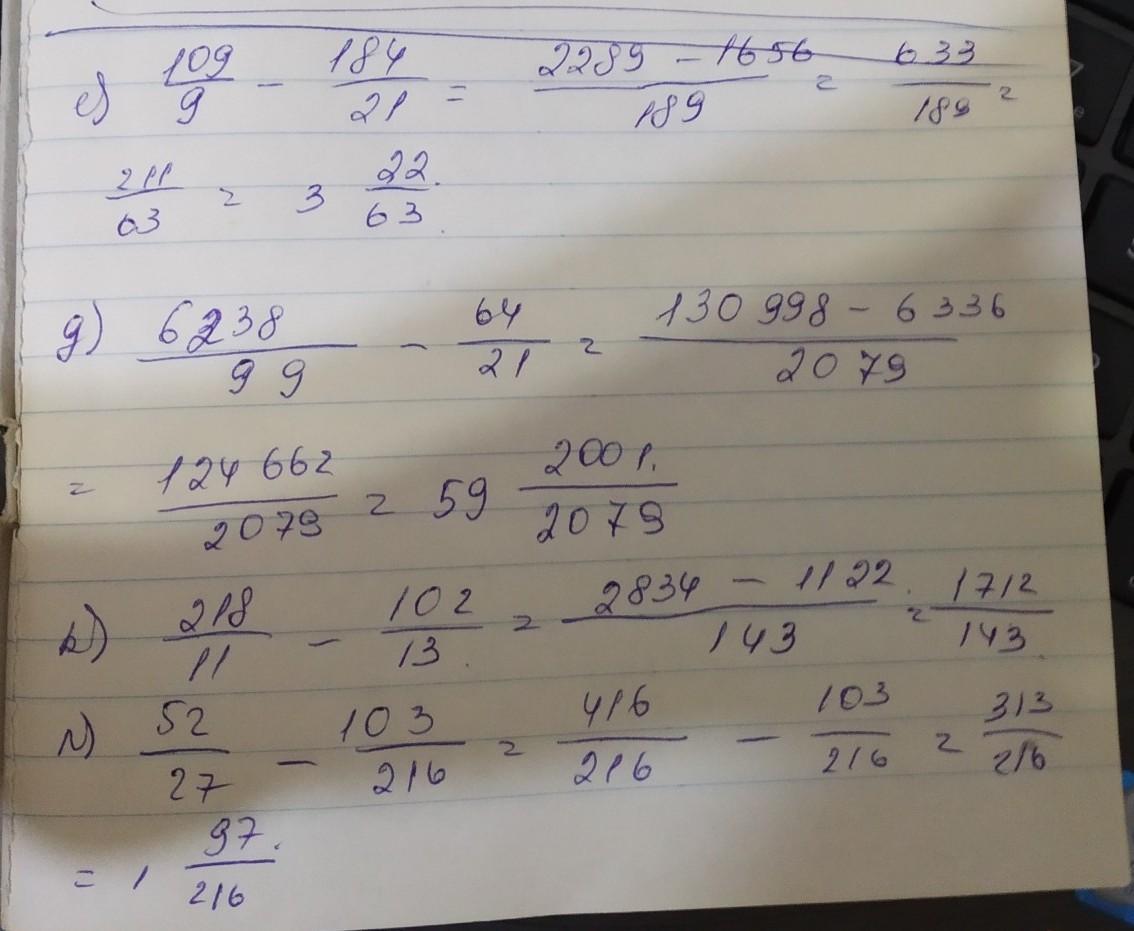 e) 109/9 - 184/21 = 2289 - 1656/189 = 633/189 =
211/63 = 3 22/63.
g) 6238/99 - 64/21 = 130 998 - 6336/2079
= 124 662/2079 = 59 2001/2079
k) 218/11 - 102/13 = 2834 - 1122/143 = 1712/143
л) 52/27 - 103/216 = 416/216 - 103/216 = 313/216
= 1 97/216